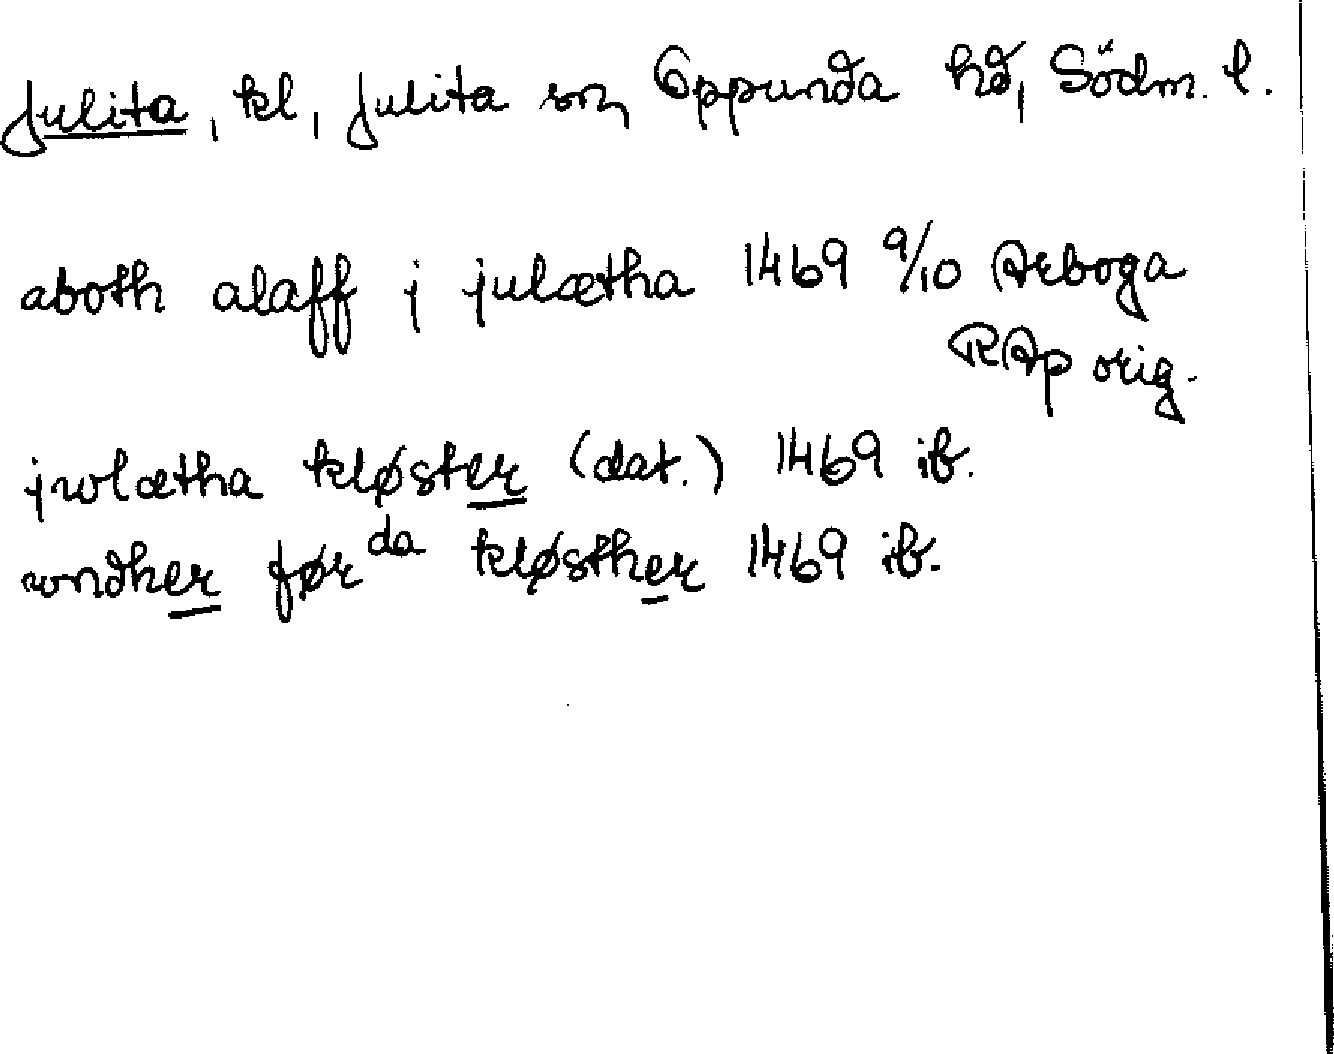 Julita, kl, Julita sn, Oppunda hd, Södm. l.
aboth alaff j julætha 1469 9/10 Arboga
RAp orig.
jwlætha kløster (dat.) 1469 ib.
wndher førda kløsther 1469 ib.